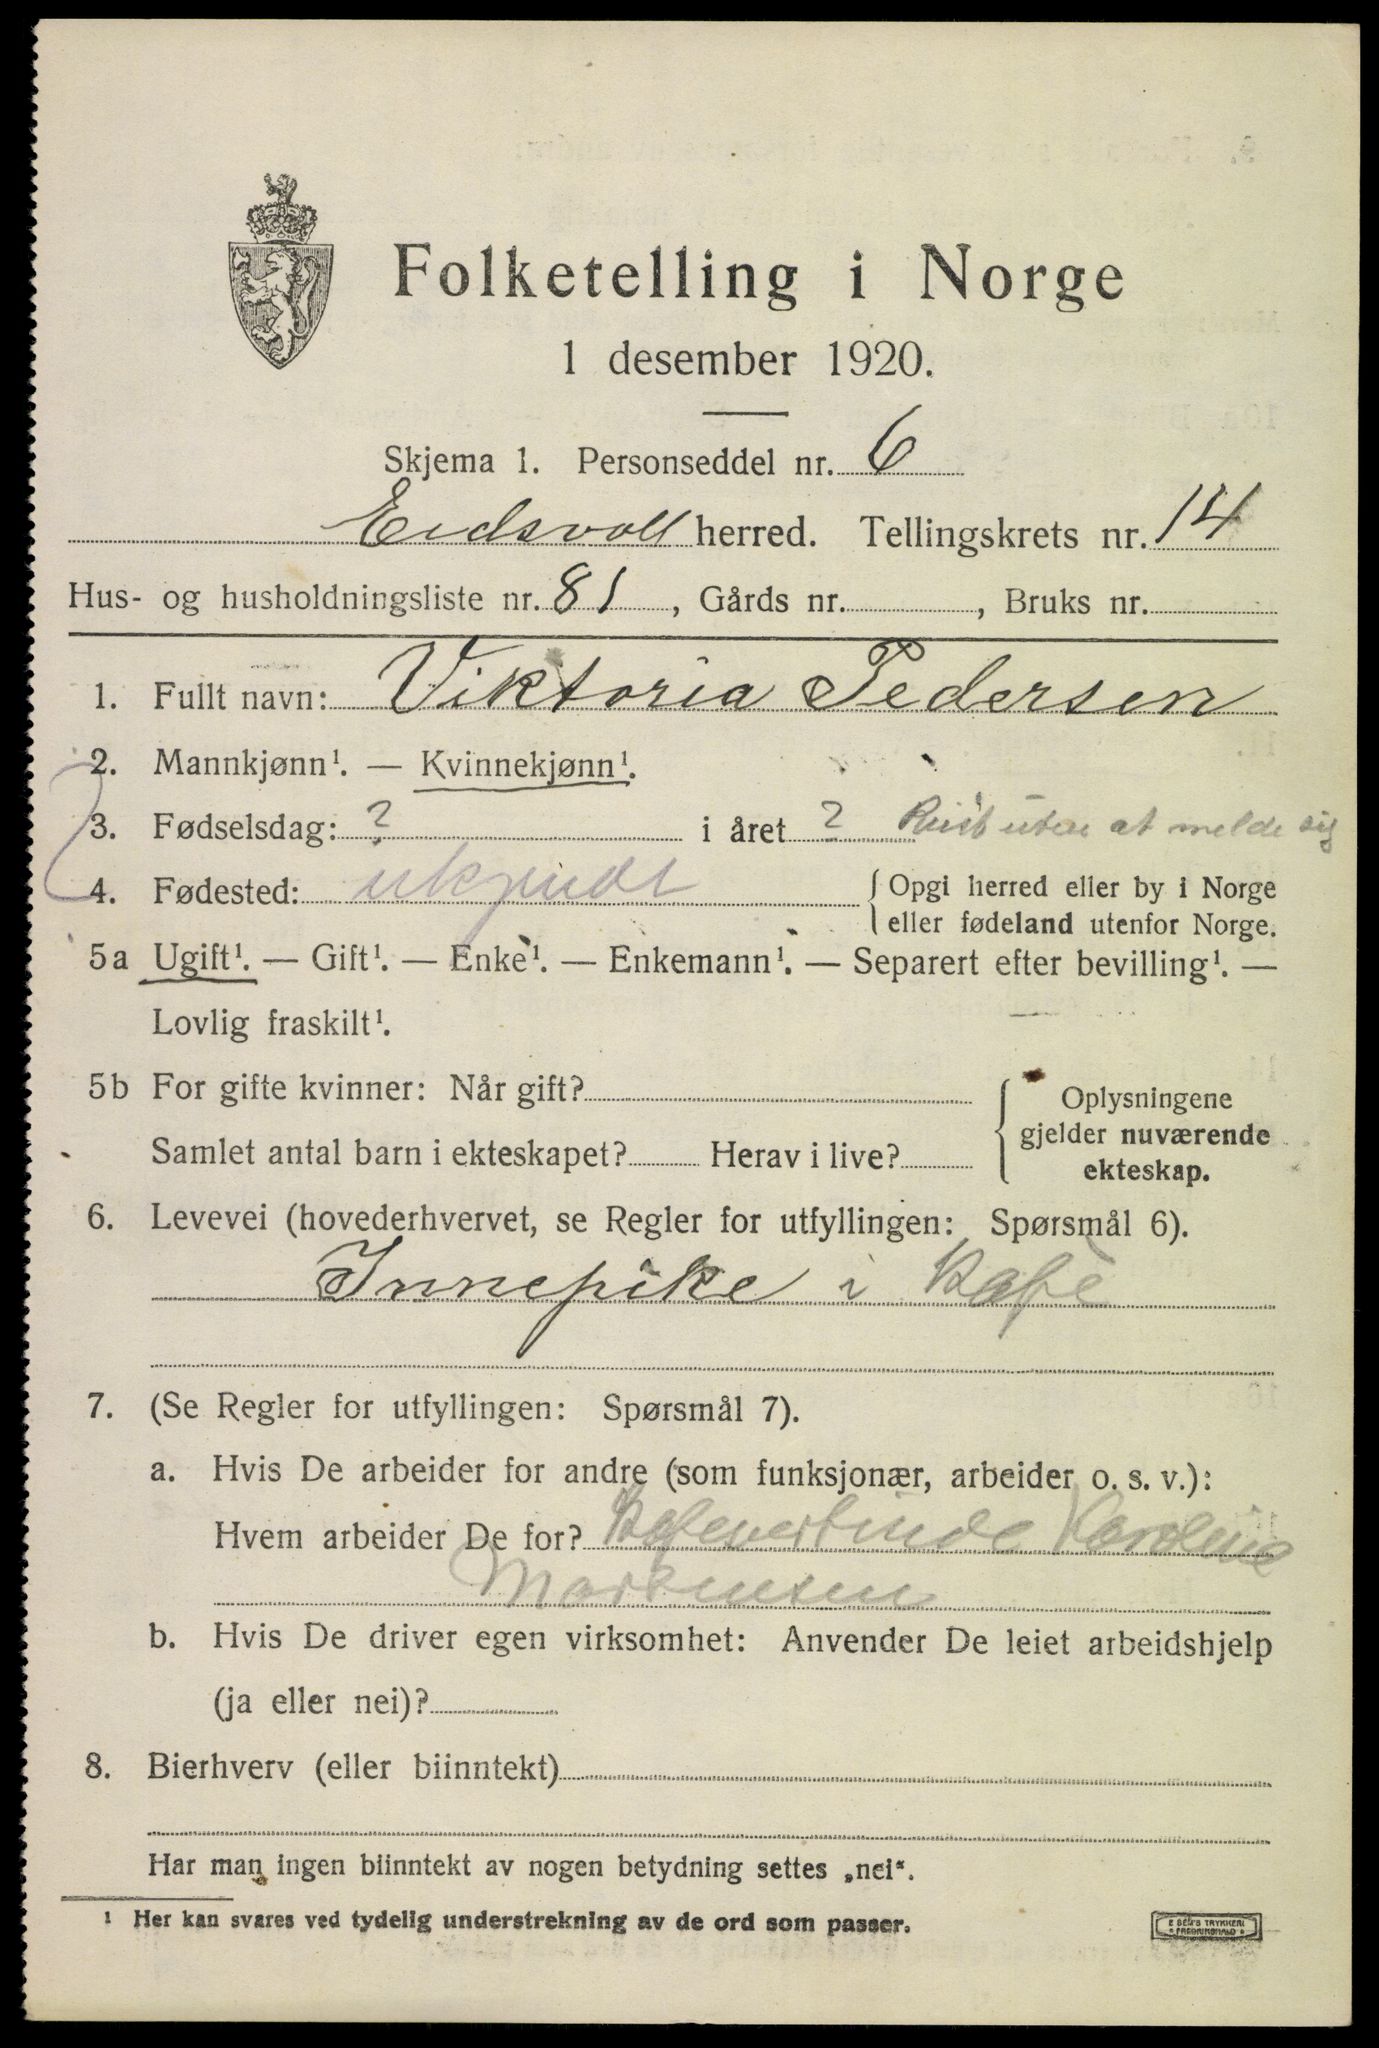 Folketelling i Norge
1 desember 1920.
Skjema 1. Personseddel nr. 6
Eidsvoll herred. Tellingskrets nr. 14
Hus- og husholdningsliste nr. 81, Gårds nr. , Bruks nr.
1. Fullt navn: Viktoria Pedersen
2. Mannkjønn¹. — Kvinnekjønn¹.
3. Fødselsdag: ? i året ? Reist uten at melde sig
4. Fødested: ukjendt {Opgi herred eller by i Norge
eller fødeland utenfor Norge.
5a Ugift¹. — Gift¹. — Enke¹. — Enkemann¹. — Separert efter bevilling¹. —
Lovlig fraskilt¹.
5b For gifte kvinner: Når gift? Oplysningene
gjelder nuværende
Samlet antal barn i ekteskapet? Herav i live?
ekteskap.
6. Levevei (hovederhvervet, se Regler for utfyllingen: Spørsmål 6).
Innepike i Kafè
7. (Se Regler for utfyllingen: Spørsmål 7).
a. Hvis De arbeider for andre (som funksjonær, arbeider o. s. v.):
Hvem arbeider De for? Kafevertinde Karoline
Martinsen
b. Hvis De driver egen virksomhet: Anvender De leiet arbeidshjelp
(ja eller nei)?
8. Bierhverv (eller biinntekt)
Har man ingen biinntekt av nogen betydning settes „nei“.
¹ Her kan svares ved tydelig understrekning av de ord som passer.
E SEM'S TRYKKERI
FREDRIKSHALD